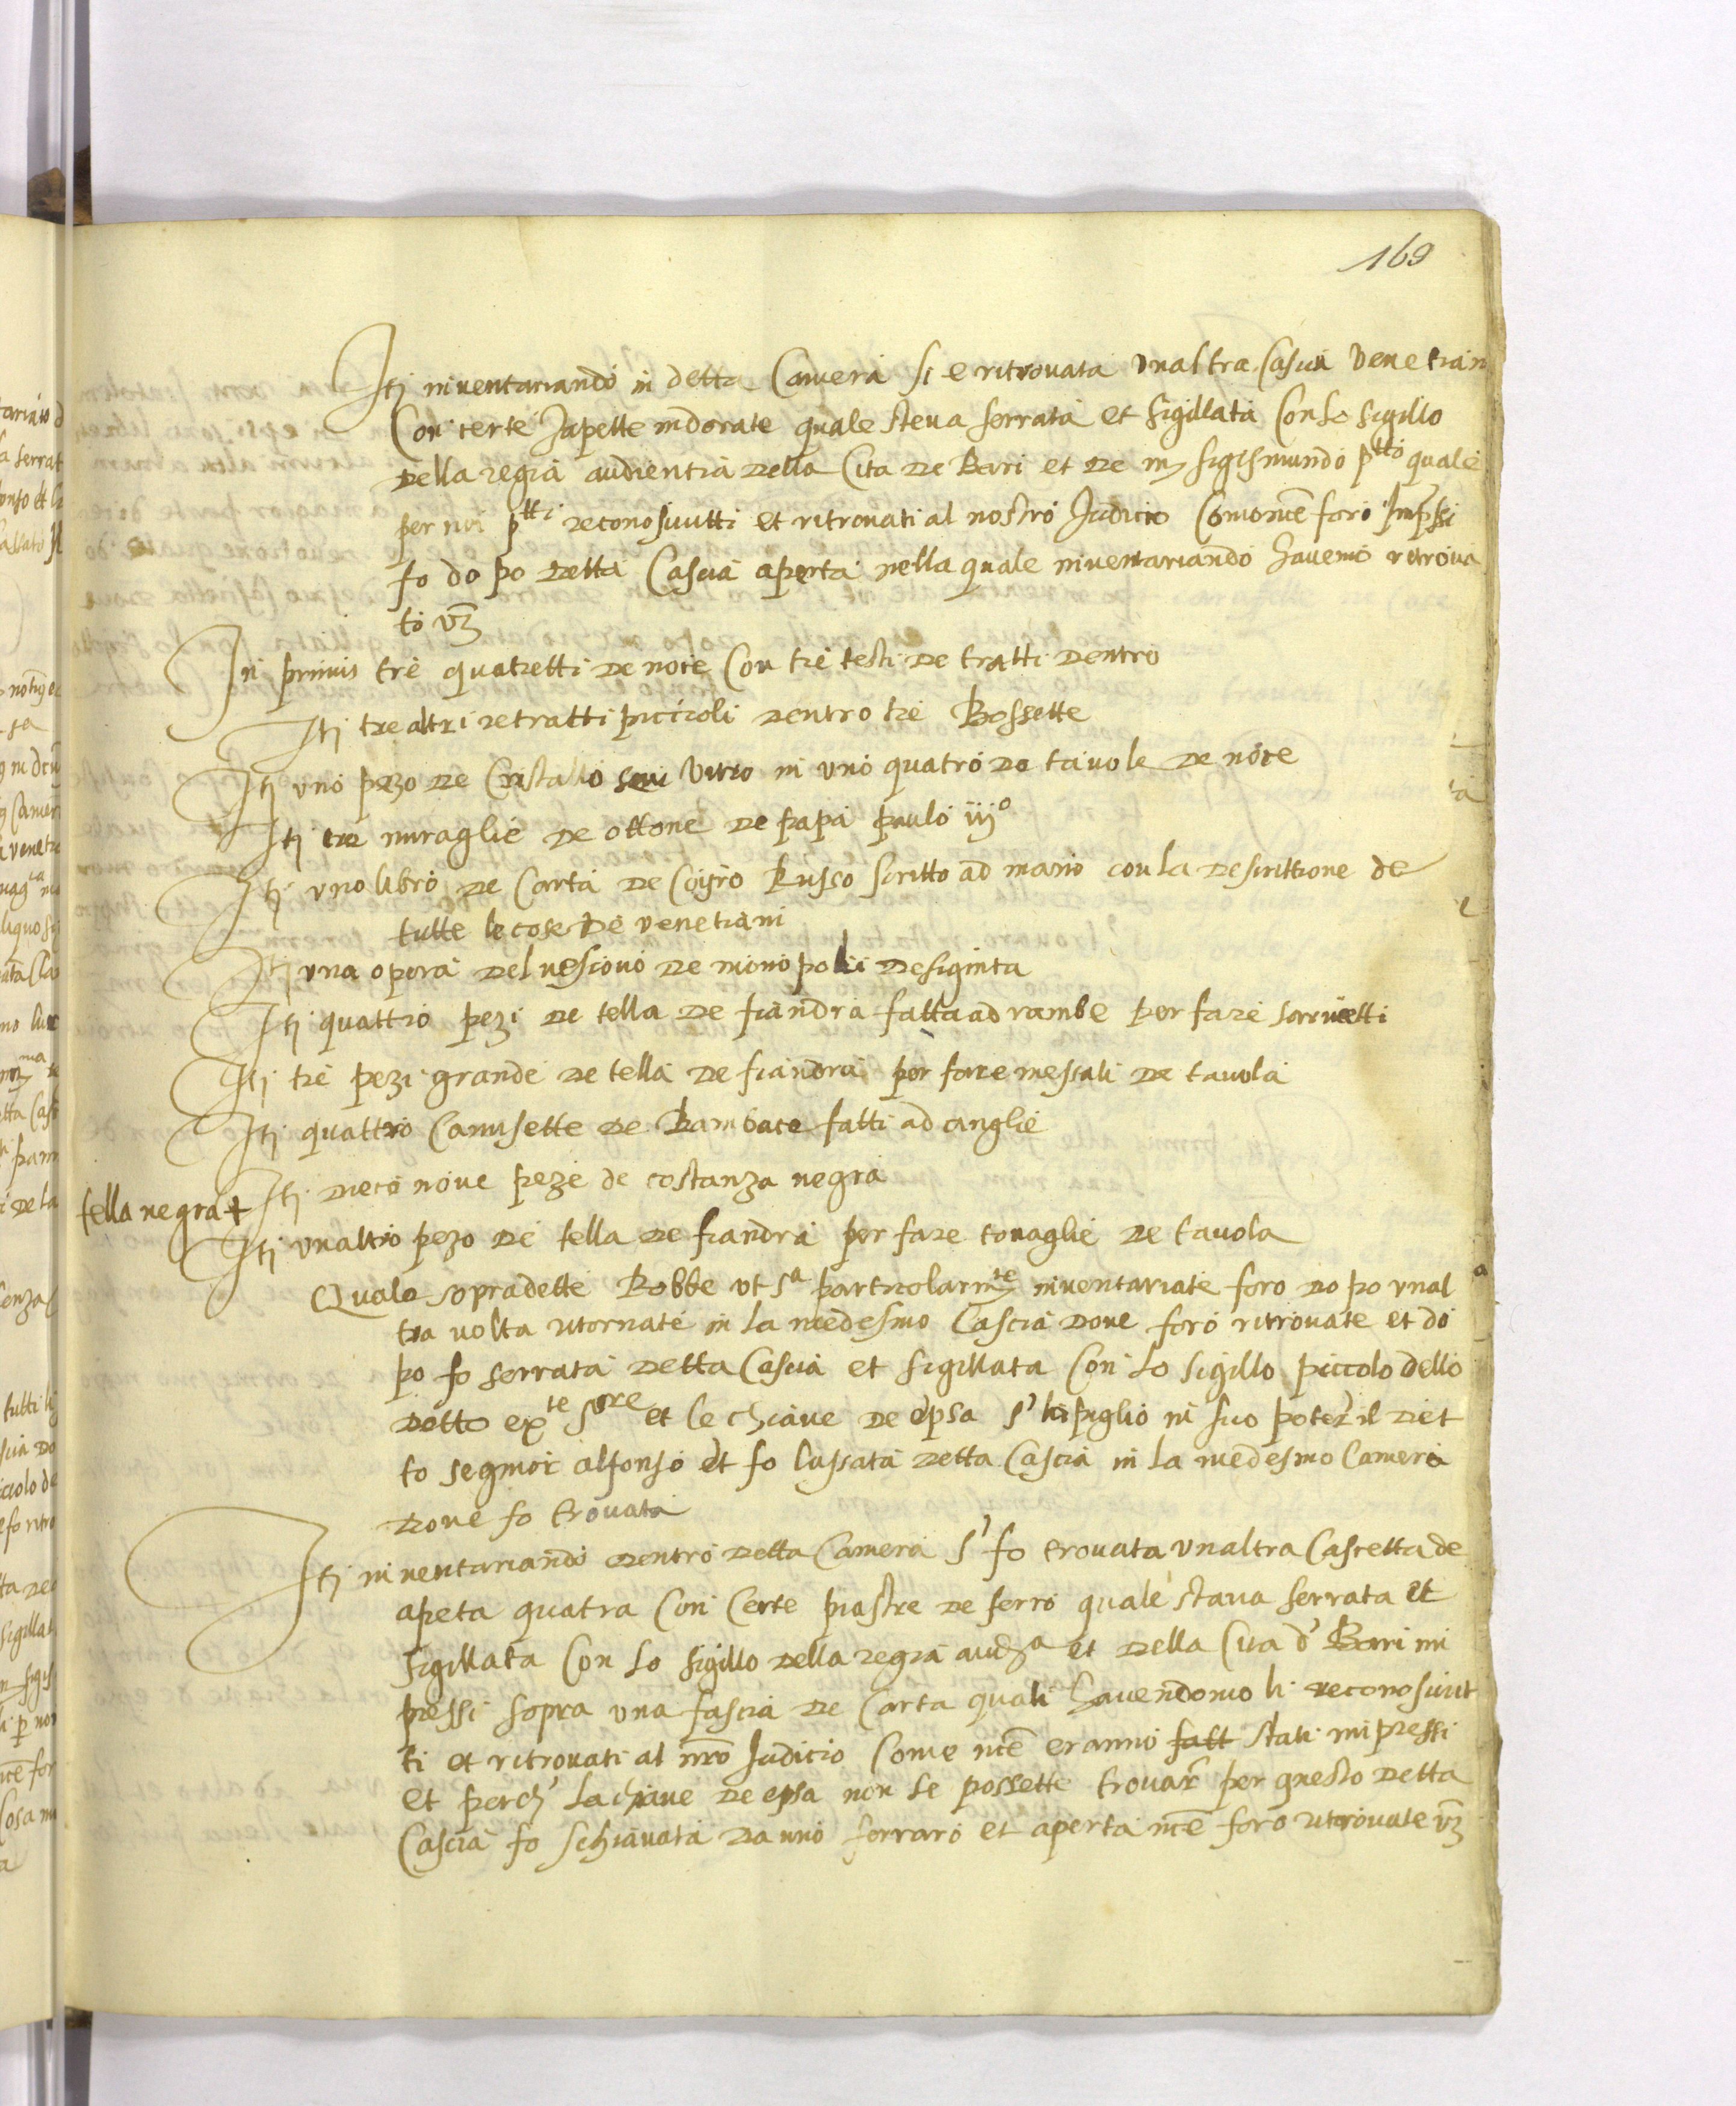 169
Itj inventariando in detta Camera si e ritrovata unaltra Cascia venetian
Con certe Japette indorate quale steva serrata et sigillata Con lo sigillo
della regia audientia della Cita de Bari et de mj sigismundo p^tto quale
per noi p^tti reconosciutti et ritrovati al nostro Judicio Como nce foro Impssi
fo do po detta Cascia aperta nella quale inventariando havemo retrova
to vz
In primis tre quatretti de noce Con tre testi de tratti dentro
Itj tre altri retratti piccioli dentro tre Bossette
Itj uno pezo de Cristallo seu Vitro in uno quatro de tavole de noce
Itj tre miraglie de ottone de papa paulo iij^o
Itj uno libro de Carta de Coiro Russo scritto ad mano con la descrittione de
tutte le cose de venetiani
Itj una opera del vescovo de monopoli desiginta
Itj quattro pezi de tella de fiandra fatta ad rambe per fare sarvietti
Itj tre pezi grande de tella de fiandra per fare messali de tavola
Itj quattro Camisette de Bambace fatti ad anglie
Itj dece nove peze de costanza negra
tella negra +
Itj unaltro pezo de tella de fiandra per fare tovaglie de tavola
Quale sopradette Robbe ut s^a particolarm^te inventariate foro do po unal
tra volta ritornate in la medesmo Cascia dove foro ritrovate et do
po fo serrata detta Cascia et sigillata Con lo sigillo piccolo dello
detto ex^te s^ore et le chiave de epsa s' li piglio in suo poter il det
to segnior alfonso et fo lassata detta Cascia in la medesmo Camera
dove fo trovata
Itj inventariando dentro detta Camera s' fo trovata unaltra Cascetta de
apeta quatra Con Certe piastre de ferro quale stava serrata et
sigillata Con lo sigillo della regia aud^a et della Cita d' Bari im
pressi sopra una fascia de Carta quali havendomo li reconosciut
ti et ritrovati al nro Judicio Come nce eranno fatt stati impressi
et perch' la chiave de epsa non se possette trovar per questo detta
Cascia fo schiavata da uno ferraro et aperta nce foro ritrovate vz